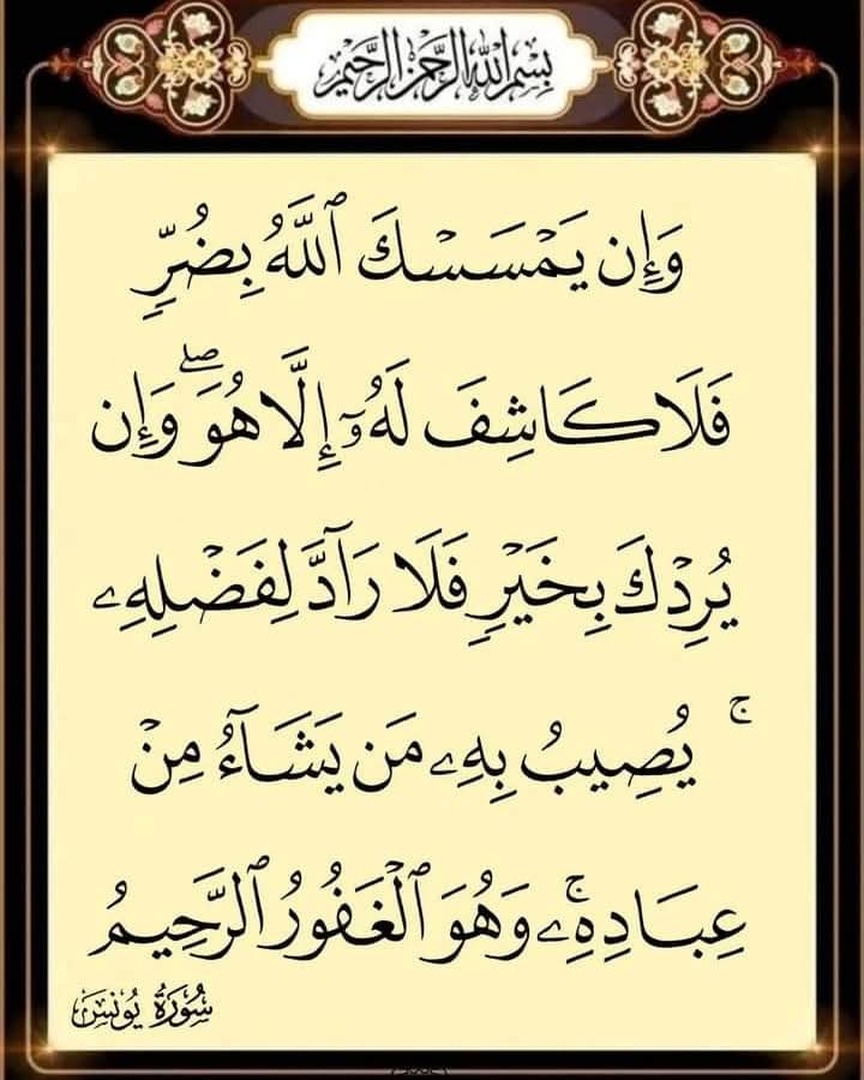 بِسْمِ اللهِ الرَّحْمٰنِ الرَّحِيْمِ
وَإِن يَمْسَسْكَ ٱللَّهُ بِضُرٍّ
فَلَا كَاشِفَ لَهُۥٓ إِلَّا هُوَ ۖ وَإِن
يُرِدْكَ بِخَيْرٍ فَلَا رَآدَّ لِفَضْلِهِۦ
ۚ يُصِيبُ بِهِۦ مَن يَشَآءُ مِنْ
عِبَادِهِۦ ۚ وَهُوَ ٱلْغَفُورُ ٱلرَّحِيمُ
سُورَةُ يُونسَ